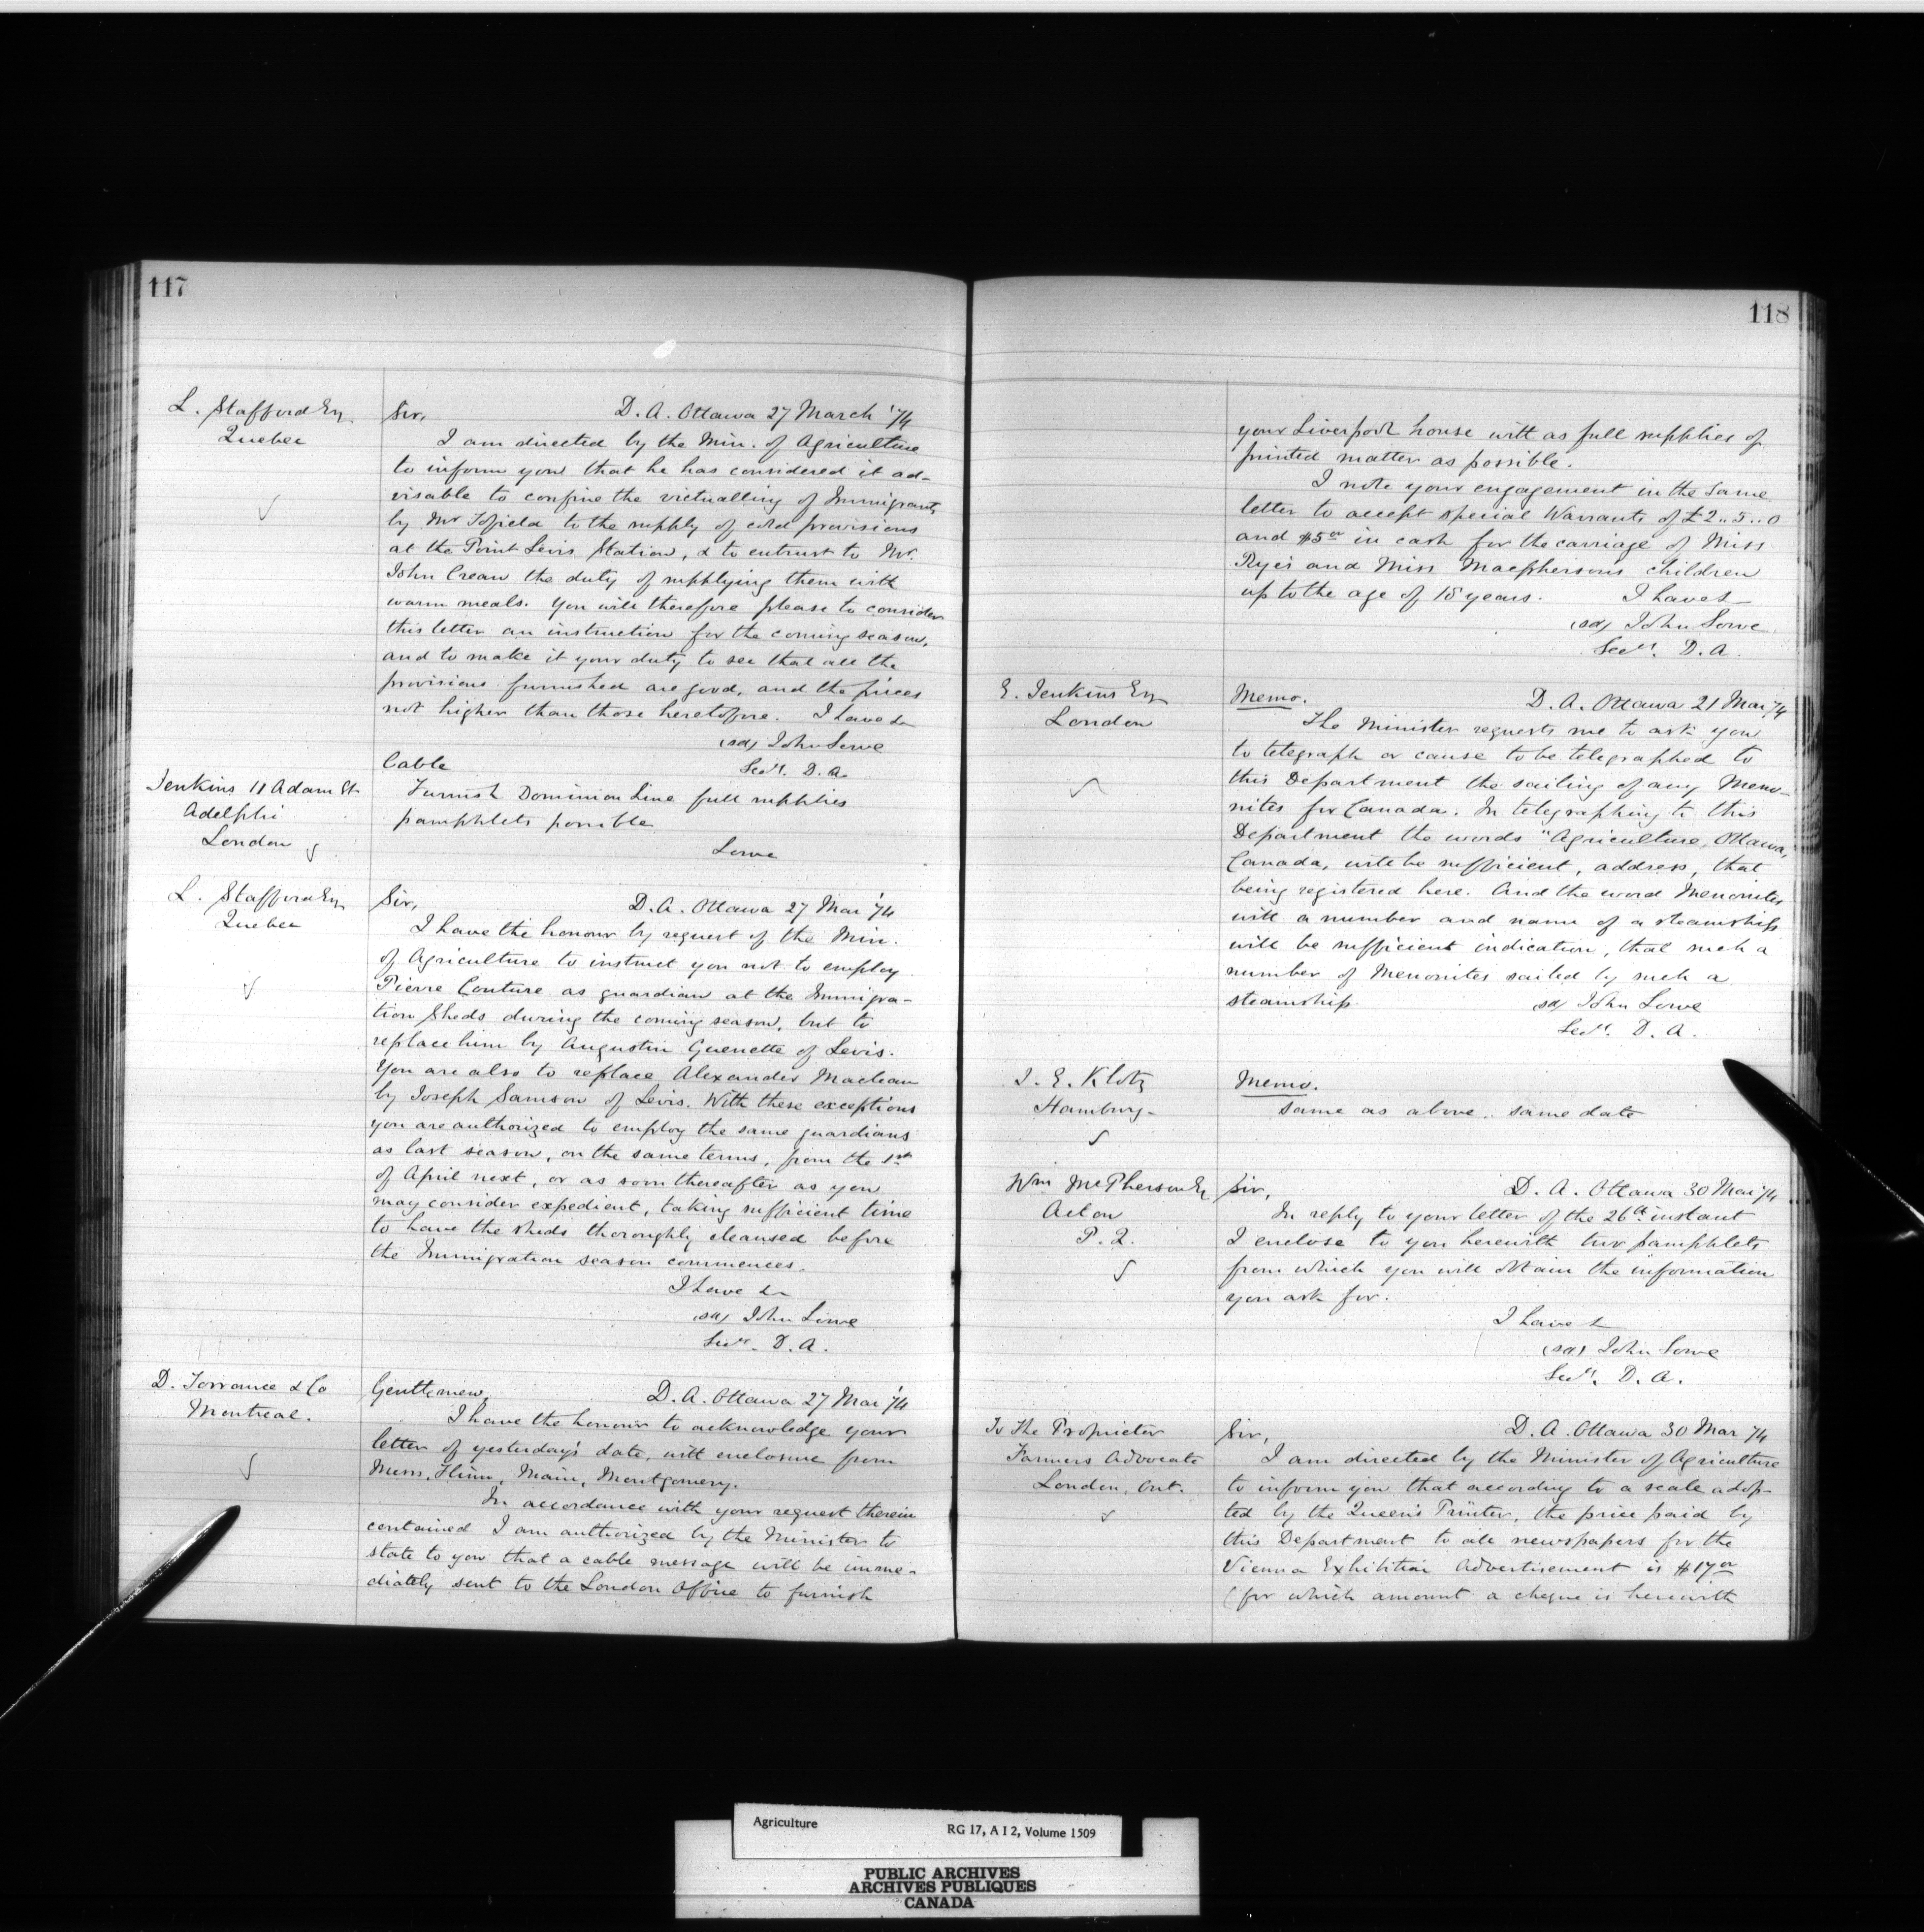 117
L. Stafford Esq
Quebec
Sir, D. A. Ottawa 27 March '74
I am directed by the Min. of Agriculture
to inform you that he has considered it ad-
visable to confine the victualling of Immigrants
by Mr Tofield to the supply of cold provisions
at the Point Levis Station, & to entrust to Mr.
John Crean the duty of supplying them with
warm meals. You will therefore please to consider
this letter an instruction for the coming season,
and to make it your duty to see that all the
provisions furnished are good, and the prices
not higher than those heretofore. I have &
(sd) John Lowe
Secy. D. A.
Jenkins 11 Adam St
Adelphi
London
Cable
Furnish Dominion Line full supplies
pamphlets possible
Lowe
L. Stafford Esq
Quebec
Sir, D. A. Ottawa 27 Mar '74
I have the honour by request of the Min.
of Agriculture to instruct you not to employ
Pierre Couture as guardian at the Immigra-
tion Sheds during the coming season, but to
replace him by Augustin Guenette of Levis.
You are also to replace Alexander Maclean
by Joseph Samson of Levis. With these exceptions
you are authorized to employ the same guardians
as last season, on the same terms, from the 1st
of April next, or as soon thereafter as you
may consider expedient, taking sufficient time
to have the sheds thoroughly cleansed before
the Immigration season commences.
I have &
(sd) John Lowe
Secy. D. A.
D. Torrance & Co
Montreal.
Gentlemen, D. A. Ottawa 27 Mar '74
I have the honour to acknowledge your
letter of yesterday's date, with enclosure from
Messrs. Flinn, Main, Montgomery.
In accordance with your request therein
contained I am authorized by the Minister to
state to you that a cable message will be imme-
diately sent to the London Office to furnish
118
your Liverpool house with as full supplies of
printed matter as possible.
I note your engagement in the same
letter to accept special Warrants of £2..5..0
and $5 00 in cash for the carriage of Miss
Ryes and Miss Macphersons children
up to the age of 18 years. I have &
(sd) John Lowe
Secy. D. A.
E. Jenkins Esq
London
Memo. D. A. Ottawa 21 Mar '74
The Minister requests me to ask you
to telegraph or cause to be telegraphed to
this Department the sailing of any Meno-
nites for Canada. In telegraphing to this
Department the words "Agriculture, Ottawa,
Canada, will be sufficient, address, that
being registered here. And the word Menonites
with a number and name of a steamship
will be sufficient indication, that such a
number of Menonites sailed by such a
steamship. sd John Lowe
Secy. D. A.
J. E. Klotz
Hamburg.
Memo.
Same as above. same date
Wm McPherson Eq
Acton
P. Q.
Sir, D. A. Ottawa 30 Mar '74
In reply to your letter of the 26th instant
I enclose to you herewith two pamphlets
from which you will obtain the information
you ask for.
I have &
(sd) John Lowe
Secy. D. A.
To The Proprietor
Farmers Advocate
London, Ont.
Sir, D. A. Ottawa 30 Mar '74
I am directed by the Minister of Agriculture
to inform you that according to a scale adop-
ted by the Queen's Printer, the price paid by
this Department to all newspapers for the
Vienna Exhibition Advertisement is $17 00
(for which amount a cheque is herewith
Agriculture RG 17, A I 2, Volume 1509
PUBLIC ARCHIVES
ARCHIVES PUBLIQUES
CANADA